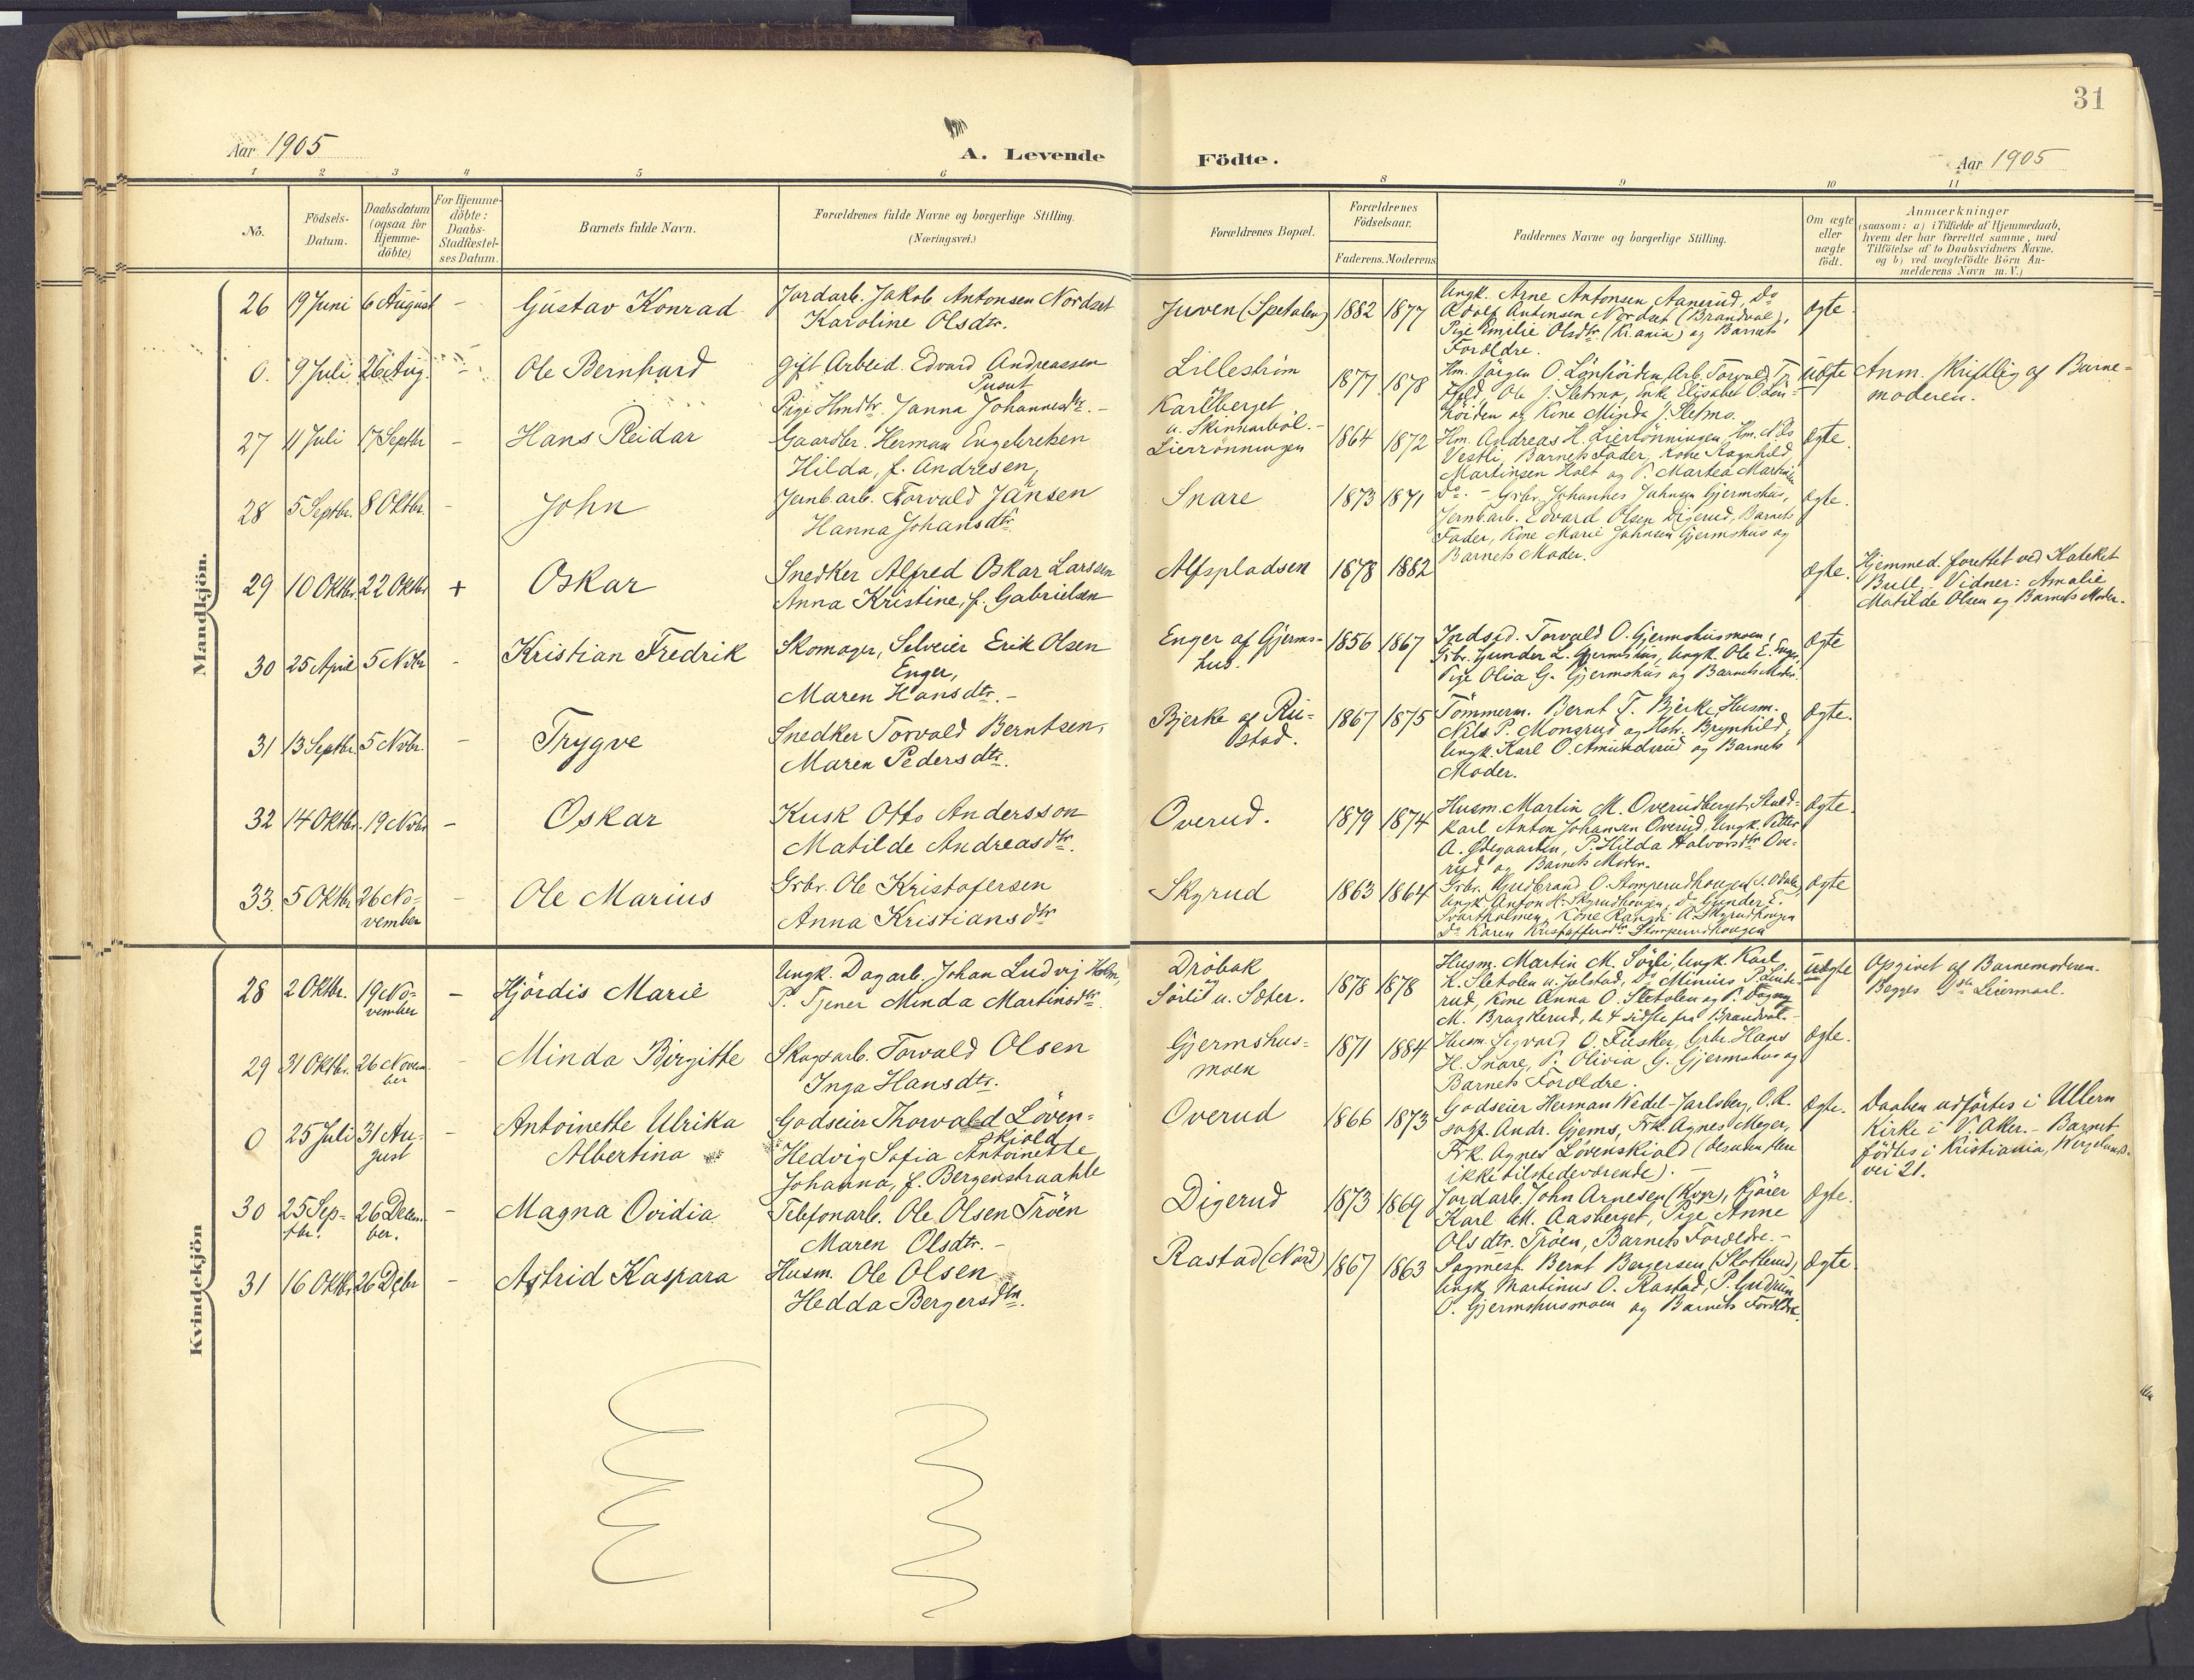 31
Aar 1905
A. Levende Födte.
Aar 1905
1 2 3 4 5 6 8 9 10 11
No.
Födsels-
Datum.
Daabsdatum
(ogsaa for
Hjemme-
döbte)
For Hjemme-
döbte:
Daabs-
Stadfæstel-
ses Datum.
Barnets fulde Navn.
Forældrenes fulde Navne og borgerlige Stilling.
(Næringsvei.)
Forældrenes Bopæl.
Forældrenes
Födselsaar.
Faderens. Moderens
Faddernes Navne og borgerlige Stilling.
Om ægte
eller
uægte
födt.
Anmærkninger
(saasom: a) i Tilfælde af Hjemmedaab,
hvem der har forrettet samme, med
Tilföielse af to Daabsvidners Navne.
og b) ved uægtefödte Börn An-
melderens Navn m. V.)
Mandkjön.
26 19 Juni 6 August - Gustav Konrad
Jordarb. Jakob Antonsen Nordset
Karoline Olsdtr.
Juven (Spetalen) 1882 1877
Ungk. Arne Antonsen Aanerud, Do
Adolf Antonsen Nordset (Brandval),
Pige Emilie Olsdtr. (Kr.ania) og Barnets
Forældre.
Ægte
0. 9 Juli 26 Aug. - Ole Bernhard
Gift Arbeid. Edvard Andreassen
Pusut
Pige Hmdtr. Janna Johannesdtr. -
Lilleström
Karlberget
u. Skinnarböl. -
1877. 1878
Hm. Jörgen O. Lönhöiden, Arb. Torvald
Ole J. Sletmo, Enke Elisabet O. Lön-
höiden og Kone Minda J. Sletmo.
Uægte
Anm. skriftlig af Barne-
moderen.
27 11 Juli 17 Septbr - Hans Reidar
Gaardbr. Herman Engebretsen
Hilda, f. Andresen,
Lierrönningen 1864 1872
Hm. Andreas H. Lierrönningen, Hm. Nils
Vestli, Barnets Fader, Kone Ragnhild
Martinsen Holt og P. Martea Martin
Ægte.
28 5 Septbr. 8 Oktbr. - John
Jernb.arb. Torvald Jansen
Hanna Johansdtr.
Snare 1873 1871
Do. - Grbr. Johannes Johnsen Gjermshus,
Jernb.arb. Edvard Olsen Digerud, Barnets
Fader, Kone Marie Johnsen Gjermshus og
Barnets Moder.
Ægte.
29 10 Oktbr. 22 Oktbr + Oskar
Snedker Alfred Oskar Larssen
Anna Kristine, f. Gabrielsen
Alfspladsen 1878 1882
Ægte.
Hjemmed. forettet ved Kateket
Bull. Vidner: Amalie
Matilde Olsen og Barnets Moder.
30 25 April 5 Nvbr - Kristian Fredrik
Skomager, Selveier Erik Olsen
Enger,
Maren Hansdtr. -
Enger af Gjerms-
hus. 1856 1867
Indsid. Torvald O. Gjermshusmoen,
Grbr. Gunder L. Gjermshus, Ungk. Ole E. Enger,
Pige Olica G. Gjermshus og Barnets Moder.
Ægte
31 13 Septbr. 5 Nvbr. - Trygve
Snedker Torvald Berntsen,
Maren Pedersdtr.
Bjerke af Ru-
stad. 1867 1875
Tömmerm. Bernt T. Bjerke, Husm.
Nils P. Monsrud og Hstr. Brynhild,
Ungk. Karl O. Amundsrud og Barnets
Moder.
Ægte.
32 14 Oktbr. 19 Nvbr - Oskar
Kusk Otto Andersson
Matilde Andreasdtr.
Overud. 1879 1874
Husm. Martin M. Overudberget, Stald-
karl Anton Johansen Overud, Ungk. Petter
A. Ödegaarden, P. Hilda Halvorsdtr Ove-
rud og Barnets Moder.
Ægte.
33. 5 Oktbr 26 No-
vember - Ole Marius
Grbr. Ole Kristofersen
Anna Kristiansdtr
Skyrud 1863 1864
Grbr. Gudbrand O. Stomperudhougen (S. Odalen),
Ungk. Anton H. Skyrudhougen, Do Gunder E.
Svartholmen, Kone Rangdi A. Skyrudhougen
Do Karen Kristoffersdtr Stomperudhougen
Ægte
Kvindekjön
28 2 Oktbr. 19 No-
vember - Hjördis Marie
Ungk. Dagarb. Johan Ludvig Holm,
P. Tjener Minda Martinsdtr.
Dröbak
Sörli u. Sæter. 1878 1878
Husm. Martin M. Sörli, Ungk. Karl
K. Sletolen u. Jölstad, Do Minius P. Linde-
rud, Kone Anna O. Sletolen og P. Dagny
M. Braskerud, de 4 sidste fra Brandval. -
Uægte
Opgivet af Barnemoderen.
Begges 1ste Leiermaal.
29 31 Oktbr. 26 Novem
ber - Minda Birgitte
Skogsarb. Torvald Olsen
Inga Hansdtr.
Gjermshus-
moen 1871 1884
Husm. Sigvard O. Fusker, Grbr. Hans
H. Snare, P. Olivia G. Gjermshus og
Barnets Forældre.
Ægte.
0 25 Juli 31 Au-
gust - Antoinette Ulrika
Albertina
Godseier Thorvald Löven-
skiold
Hedvig Sofia Antoinette
Johanna, f. Bergenstraahle
Overud 1866 1873
Godseier Herman Wedel-Jarlsberg, O.R.
sagf. Andr. Gjems, Frk. Agnes Meyer,
Frk. Agnes Lövenskiold (desuden flere
ikke tilstedeværende). -
Ægte.
Daaben udförtes i Ullern
Kirke i V. Aker. - Barnet
födtes i Kristiania, Wergelands-
vei 21.
30 25 Sep-
tbr. 26 Decem
ber. - Magna Ovidia
Telefonarb. Ole Olsen Tröen
Maren Olsdtr. -
Digerud 1873 1869
Jordarb. John Arnesen (Kvga), Kjörer
Karl M. Aasberget, Pige Anne
Olsdtr. Tröen, Barnets Forældre. -
Ægte.
31 16 Oktbr 26 Debr - Astrid Kaspara
Husm. Ole Olsen
Hedda Bergersdtr.
Rastad (Nord) 1867 1863
Sagmest. Bernt Bergersen (Skotterud),
Ungk. Martinus O. Rastad, P. Gudrun
O. Gjermshusmoen og Barnets Forældre.
Ægte.